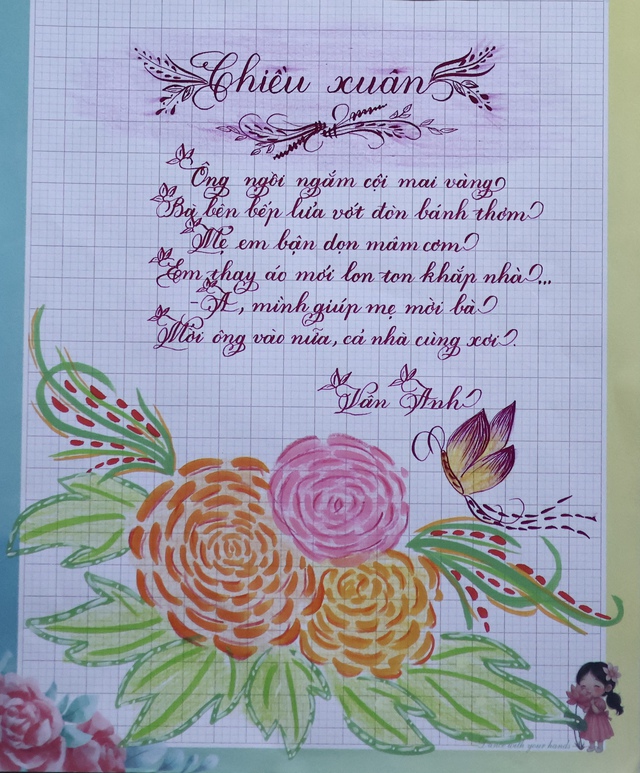 Chiều xuân
Ông ngồi ngắm cội mai vàng
Bà bên bếp lửa vớt đòn bánh thơm
Mẹ em bận dọn mâm cơm
Em thay áo mới lon ton khắp nhà...
- A, mình giúp mẹ mời bà
Mời ông vào nữa, cả nhà cùng xơi.
Vân Anh
with your hands